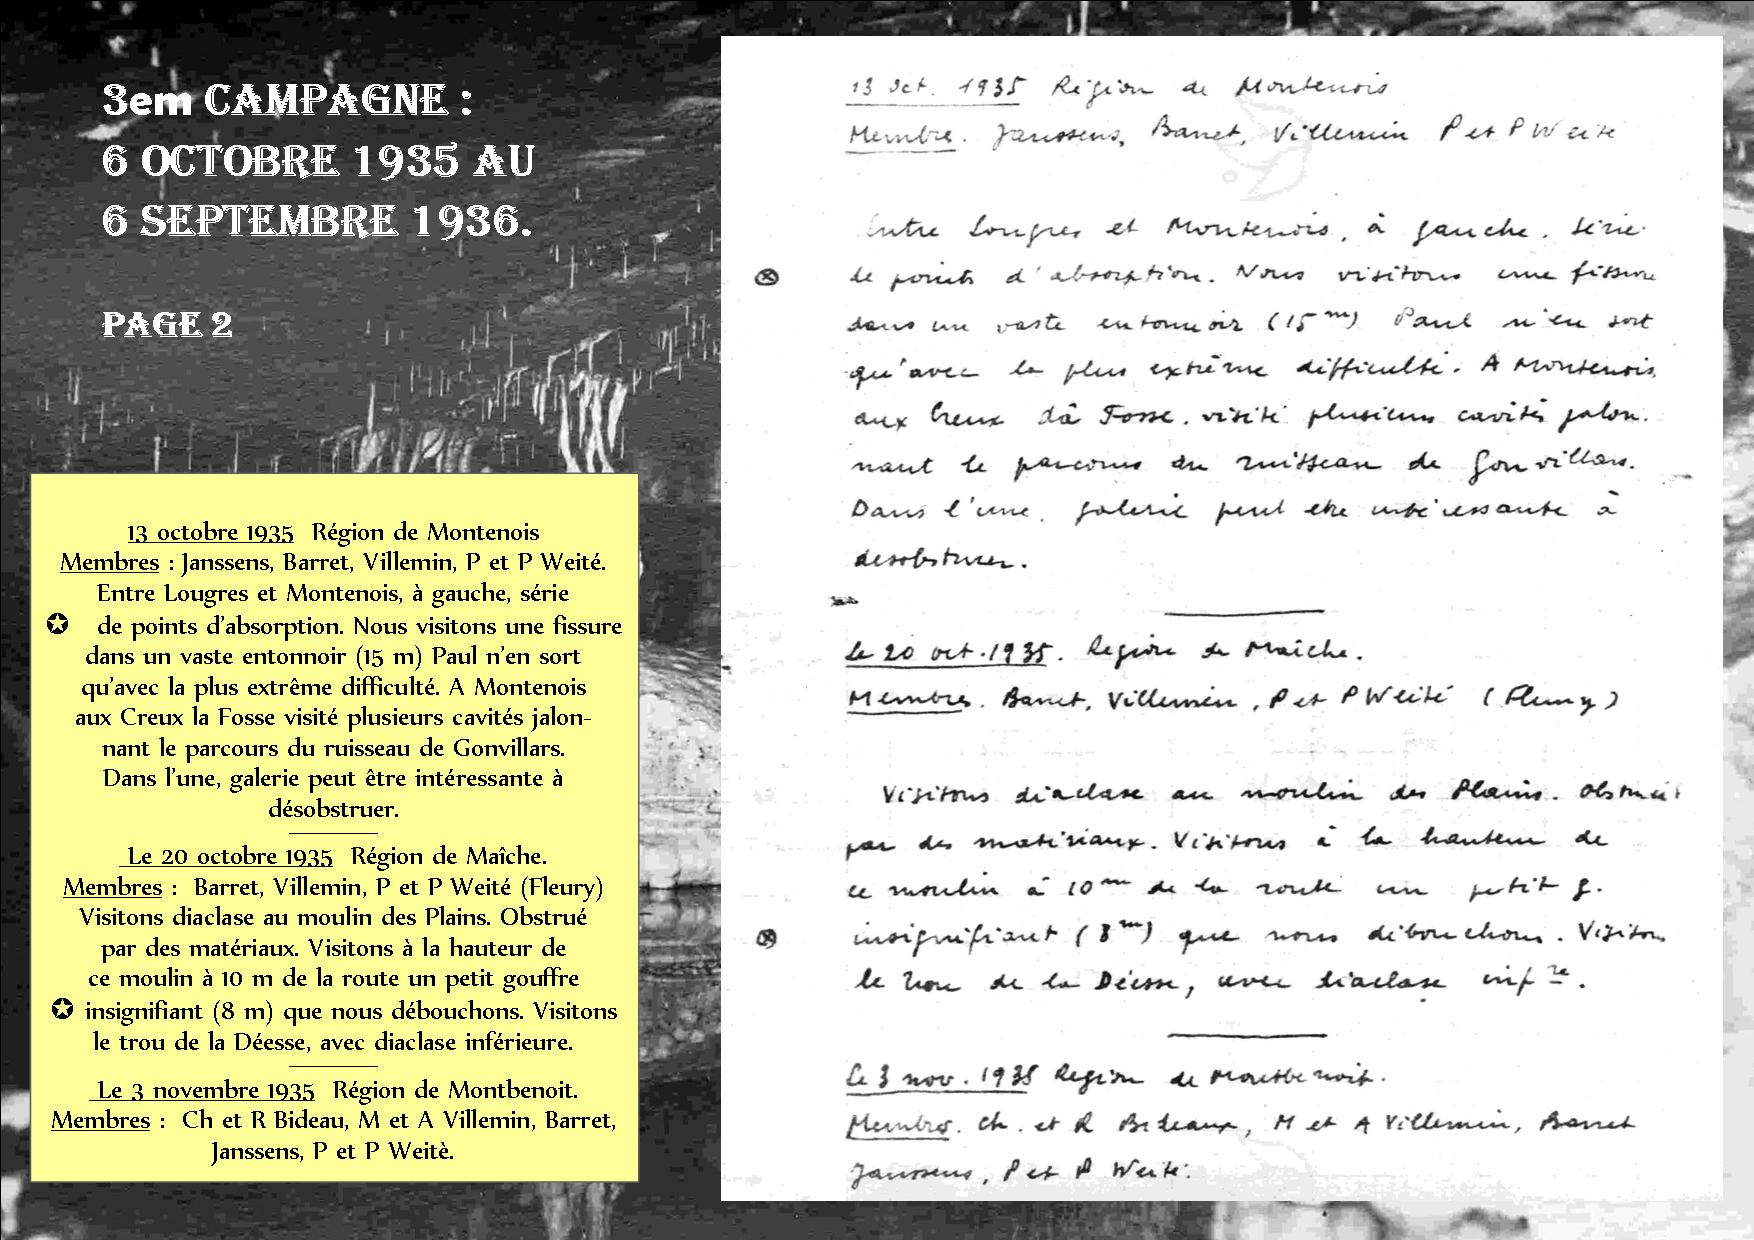 3em CAMPAGNE :
6 OCTOBRE 1935 AU
6 SEPTEMBRE 1936.
PAGE 2
13 octobre 1935 Région de Montenois
Membres : Janssens, Barret, Villemin, P et P Weité.
Entre Lougres et Montenois, à gauche, série
✪ de points d’absorption. Nous visitons une fissure
dans un vaste entonnoir (15 m) Paul n’en sort
qu’avec la plus extrême difficulté. A Montenois
aux Creux la Fosse visité plusieurs cavités jalon-
nant le parcours du ruisseau de Gonvillars.
Dans l’une, galerie peut être intéressante à
désobstruer.
Le 20 octobre 1935 Région de Maîche.
Membres : Barret, Villemin, P et P Weité (Fleury)
Visitons diaclase au moulin des Plains. Obstrué
par des matériaux. Visitons à la hauteur de
ce moulin à 10 m de la route un petit gouffre
✪ insignifiant (8 m) que nous débouchons. Visitons
le trou de la Déesse, avec diaclase inférieure.
Le 3 novembre 1935 Région de Montbenoit.
Membres : Ch et R Bideau, M et A Villemin, Barret,
Janssens, P et P Weitè.
13 oct. 1935 Région de Montenois
Membre. Janssens, Barret, Villemin P et P Weité
Entre Lougres et Montenois, à gauche, série
de points d'absorption. Nous visitons une fissure
dans un vaste entonnoir (15 m) Paul n'en sort
qu'avec la plus extrême difficulté. A Montenois,
aux Creux Fosse. visité plusieurs cavités jalon-
nant le parcours du ruisseau de Gonvillars.
Dans l'une, galerie peut etre intéressante à
desobstruer.
Le 20 oct. 1935. Region de Maîche.
Membres. Barret, Villemin, P et P Weité (Fleury)
Visitons diaclase au moulin des Plains. Obstrué
par des matériaux. Visitons à la hauteur de
ce moulin à 10 m de la route un petit g.
insignifiant (8 m) que nous débouchons. Visitons
le trou de la Déesse, avec diaclase inf re.
Le 3 nov. 1935 Region de Montbenoit.
Membres. Ch. et R Bideaux, M et A Villemin, Barret
Janssens, P et P Weité.